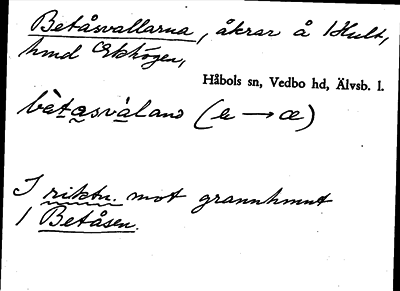 Betåsvallarna, åkrar å 1 Hult,
hmd Ekhögen,
Håbols sn, Vedbo hd, Älvsb. l.
bètasvàlanɷ (a → æ)
I riktn. mot grannhmnt
1 Betåsen.